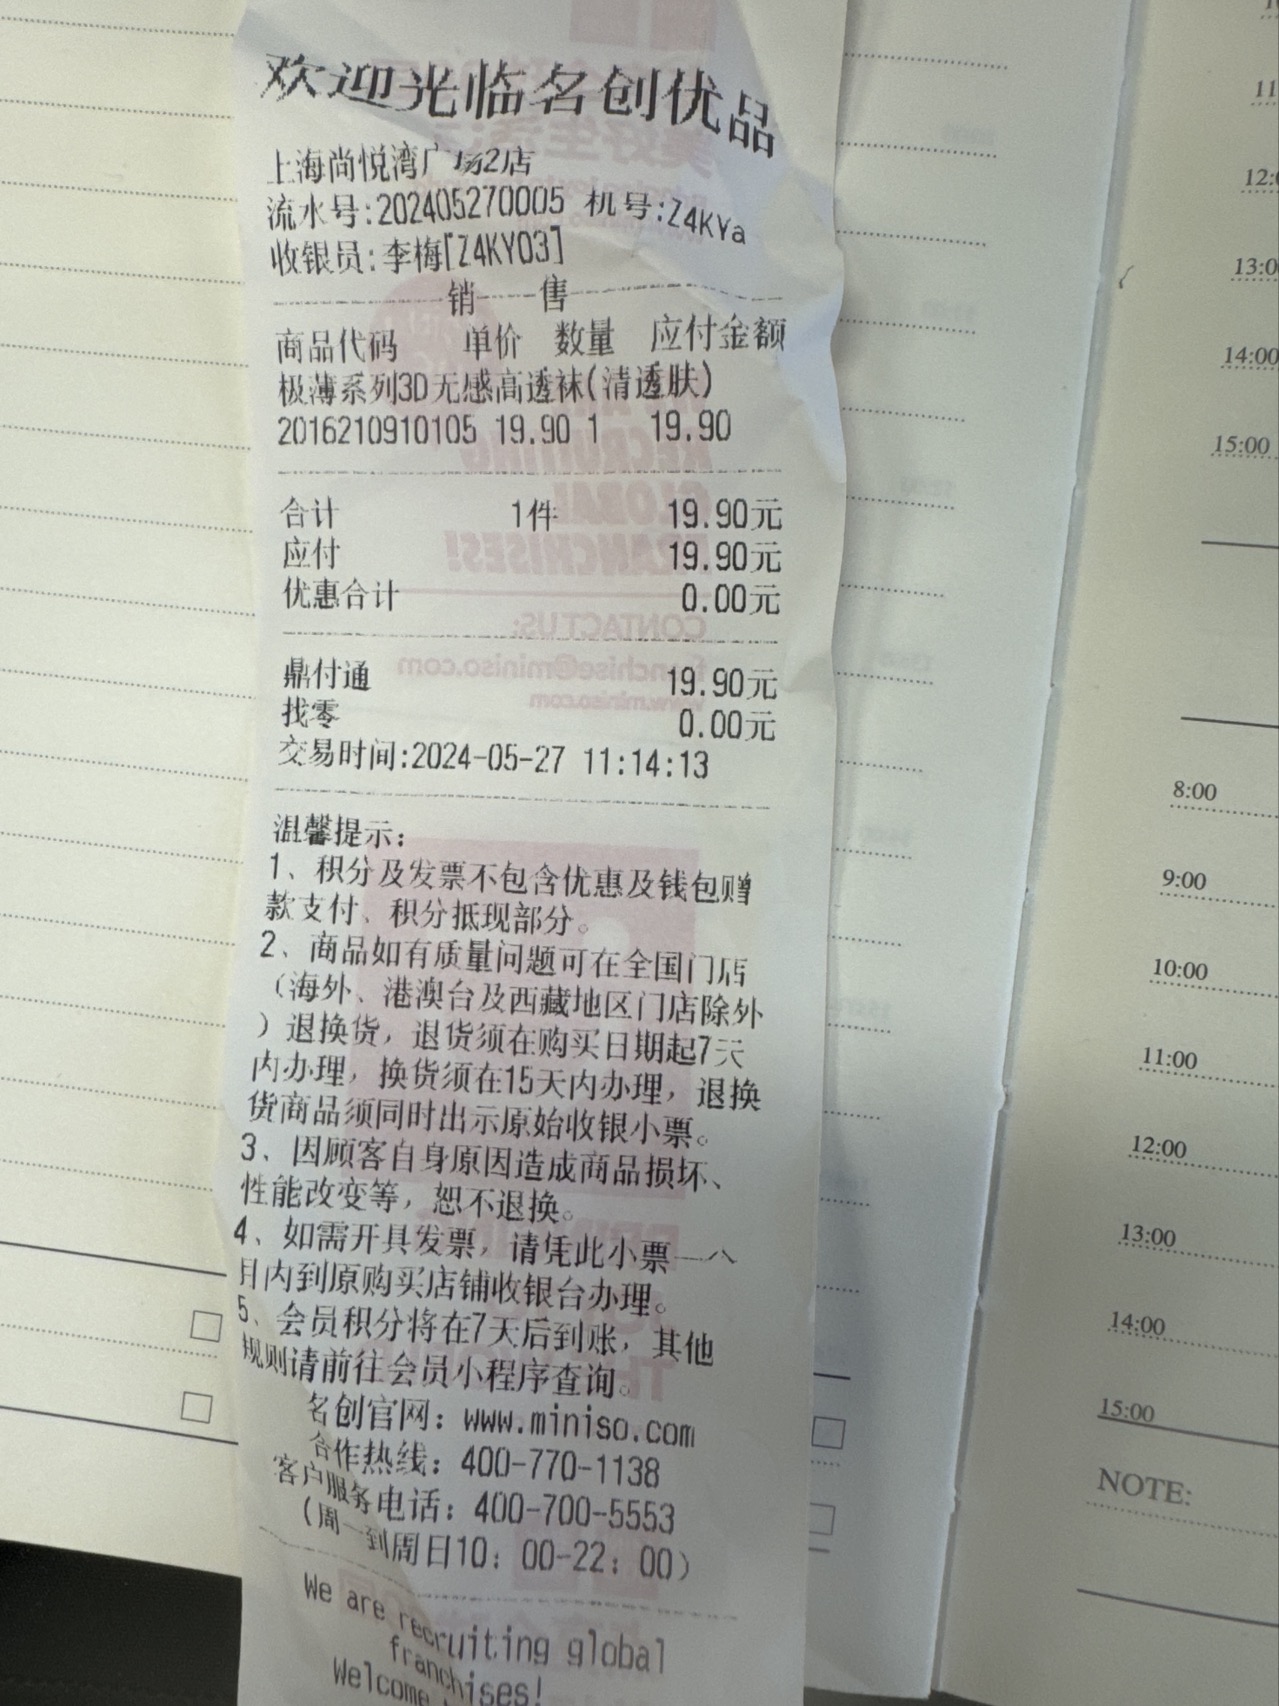 欢迎光临名创优品
上海尚悦湾广场2店
流水号:202405270005 机号:Z4KYa
收银员:李梅[Z4KY03]
销----售
商品代码 单价 数量 应付金额
极薄系列3D无感高透袜(清透肤)
2016210910105 19.90 1 19.90
合计 1件 19.90元
应付 19.90元
优惠合计 0.00元
鼎付通 19.90元
找零 0.00元
交易时间:2024-05-27 11:14:13
温馨提示:
1、积分及发票不包含优惠及钱包赠
款支付、积分抵现部分。
2、商品如有质量问题可在全国门店
(海外、港澳台及西藏地区门店除外
)退换货,退货须在购买日期起7天
内办理,换货须在15天内办理,退换
货商品须同时出示原始收银小票。
3、因顾客自身原因造成商品损坏、
性能改变等,恕不退换。
4、如需开具发票,请凭此小票一个
月内到原购买店铺收银台办理。
5、会员积分将在7天后到账,其他
规则请前往会员小程序查询。
名创官网:www.miniso.com
合作热线:400-770-1138
客户服务电话:400-700-5553
(周一到周日10:00-22:00)
We are recruiting global
franchises!
Welcome
12:0
13:0
14:00
15:00
8:00
9:00
10:00
11:00
12:00
13:00
14:00
15:00
NOTE: